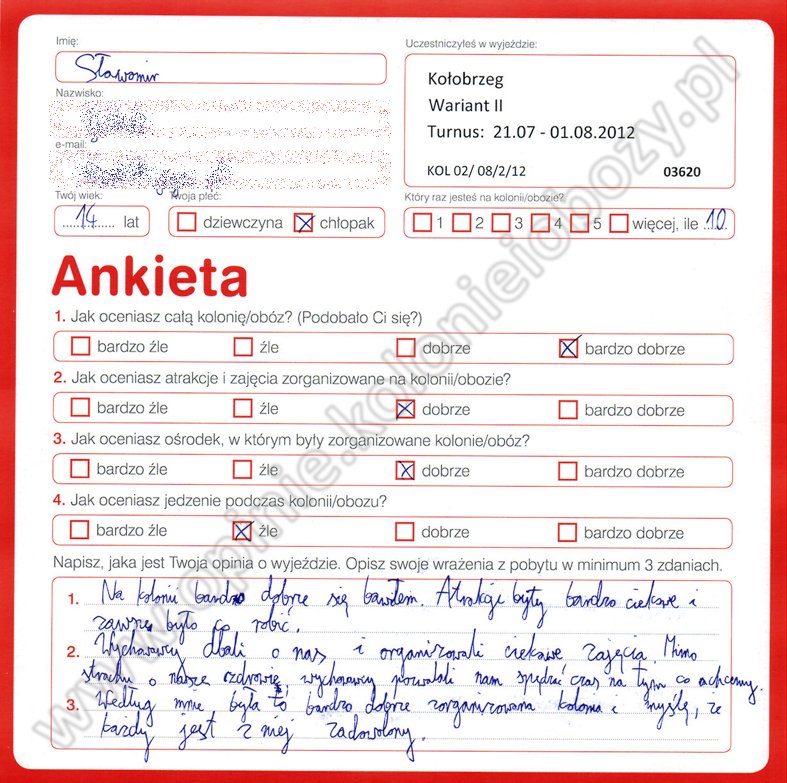 Imię:
Sławomir
Uczestniczyłeś w wyjeździe:
Kołobrzeg
Wariant II
Turnus: 21.07 - 01.08.2012
KOL 02/ 08/2/12 03620
Nazwisko:
e-mail:
Twój wiek: Twoja płeć:
14 lat
dziewczyna chłopak
Który raz jesteś na kolonii/obozie?
1 2 3 4 5 więcej, ile 10
Ankieta
1. Jak oceniasz całą kolonię/obóz? (Podobało Ci się?)
bardzo źle źle dobrze bardzo dobrze
2. Jak oceniasz atrakcje i zajęcia zorganizowane na kolonii/obozie?
bardzo źle źle dobrze bardzo dobrze
3. Jak oceniasz ośrodek, w którym były zorganizowane kolonie/obóz?
bardzo źle źle dobrze bardzo dobrze
4. Jak oceniasz jedzenie podczas kolonii/obozu?
bardzo źle źle dobrze bardzo dobrze
Napisz, jaka jest Twoja opinia o wyjeździe. Opisz swoje wrażenia z pobytu w minimum 3 zdaniach.
1. Na kolonii bardzo dobrze się bawiłem. Atrakcje były bardzo ciekawe i
zawsze było co robić.
2. Wychowawcy dbali o nas i organizowali ciekawe zajęcia. Mimo
strachu o nasze zdrowie wychowawcy pozwalali nam spędzać czas na tym co chcemy.
3. Według mnie była to bardzo dobrze zorganizowana kolonia i myślę, że
każdy jest z niej zadowolony.
www.opinie.kolonieiobozy.pl